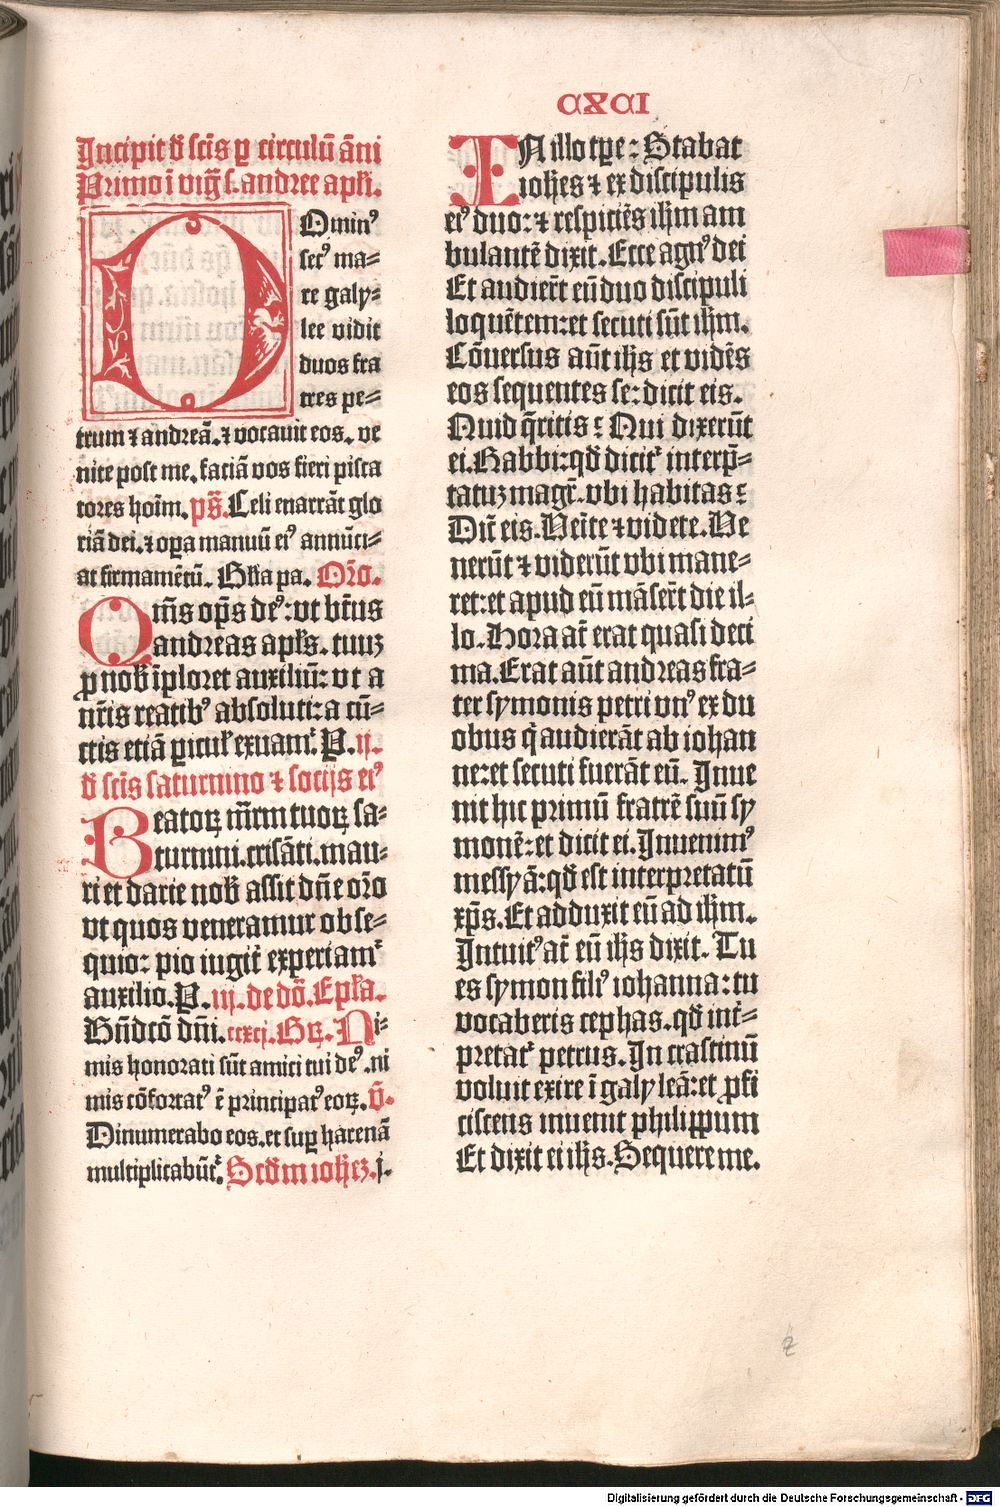 CXCI
Incipit đ scīs ꝑ circulū āni
Primo ī vigꝭ s. andree apłi.
DOminꝰ
secꝰ ma⸗
re galy⸗
lee vidit
duos fra
tres pe⸗
trum ⁊ andreā. ⁊ vocauit eos. ve
nite post me. faciā vos fieri pisca
tores hoīm. ps̄. Celi enarrāt glo
riā dei. ⁊ oꝑa manuū eiꝰ annūci⸗
at firmamētū. Gł̄ia pa. Or̄o.
Qm̄s op̄s deꝰ: vt bt̄us
andreas apłs. tuuꝫ
ꝓ nob̄ īploret auxiliū: vt a
nr̄is reatibꝰ absoluti: a cū⸗
ctis etiā ꝑicuł exuamꝭ. P. ij.
đ scīs saturnino ⁊ socijs eiꝰ
Beatoꝝ m̄rm tuoꝝ sa⸗
turnini. crisāti. mau⸗
ri et darie nob̄ assit dn̄e or̄o
vt quos veneramur obse⸗
quio: pio iugit̄ experiamꝭ
auxilio. P. iij. de dō. Epła.
Bn̄dcō dn̄i. ccxcj. Gꝝ. Ni⸗
mis honorati sūt amici tui deꝰ. ni
mis cōfortatꝰ ē principatꝰ eoꝝ. v̄.
Dinumerabo eos. et suꝑ harenā
multiplicabūt̄. Scđm ioħeꝫ. j.
IN illo tꝑe: Stabat
ioħes ⁊ ex discipulis
eiꝰ duo: ⁊ respiciēs iħm am
bulantē dixit. Ecce agnꝰ dei
Et audier̄t eū duo discipuli
loquētem: et secuti sūt iħm.
Cōuersus aūt iħs et vidēs
eos sequentes se: dicit eis.
Quid q̄ritis? Qui dixerūt
ei. Rabbi: qđ dicit̄ interp̄⸗
tatuꝫ magr̄. vbi habitas?
Dic̄t eis. Ven̄ite ⁊ videte. Ve
nerūt ⁊ viderūt vbi mane⸗
ret: et apud eū māser̄t die il⸗
lo. Hora at̄ erat quasi deci
ma. Erat aūt andreas fra⸗
ter symonis petri vnꝰ ex du
obus q̇ audierāt ab iohan
ne: et secuti fuerāt eū. Inue
nit hic primū fratrē suū sy
monē: et dicit ei. Inuenimꝰ
messyā: qđ est interpretatū
xp̄s. Et adduxit eū ad iħm.
Intuitꝰ at̄ eū iħs dixit. Tu
es symon filiꝰ iohanna: tu
vocaberis cephas. qđ int̄⸗
pretat̄ petrus. In crastinū
voluit exire ī galyleā: et ꝓfi
ciscens inuenit philippum
Et dixit ei iħs. Sequere me.
z
Digitalisierung gefördert durch die Deutsche Forschungsgemeinschaft - DFG